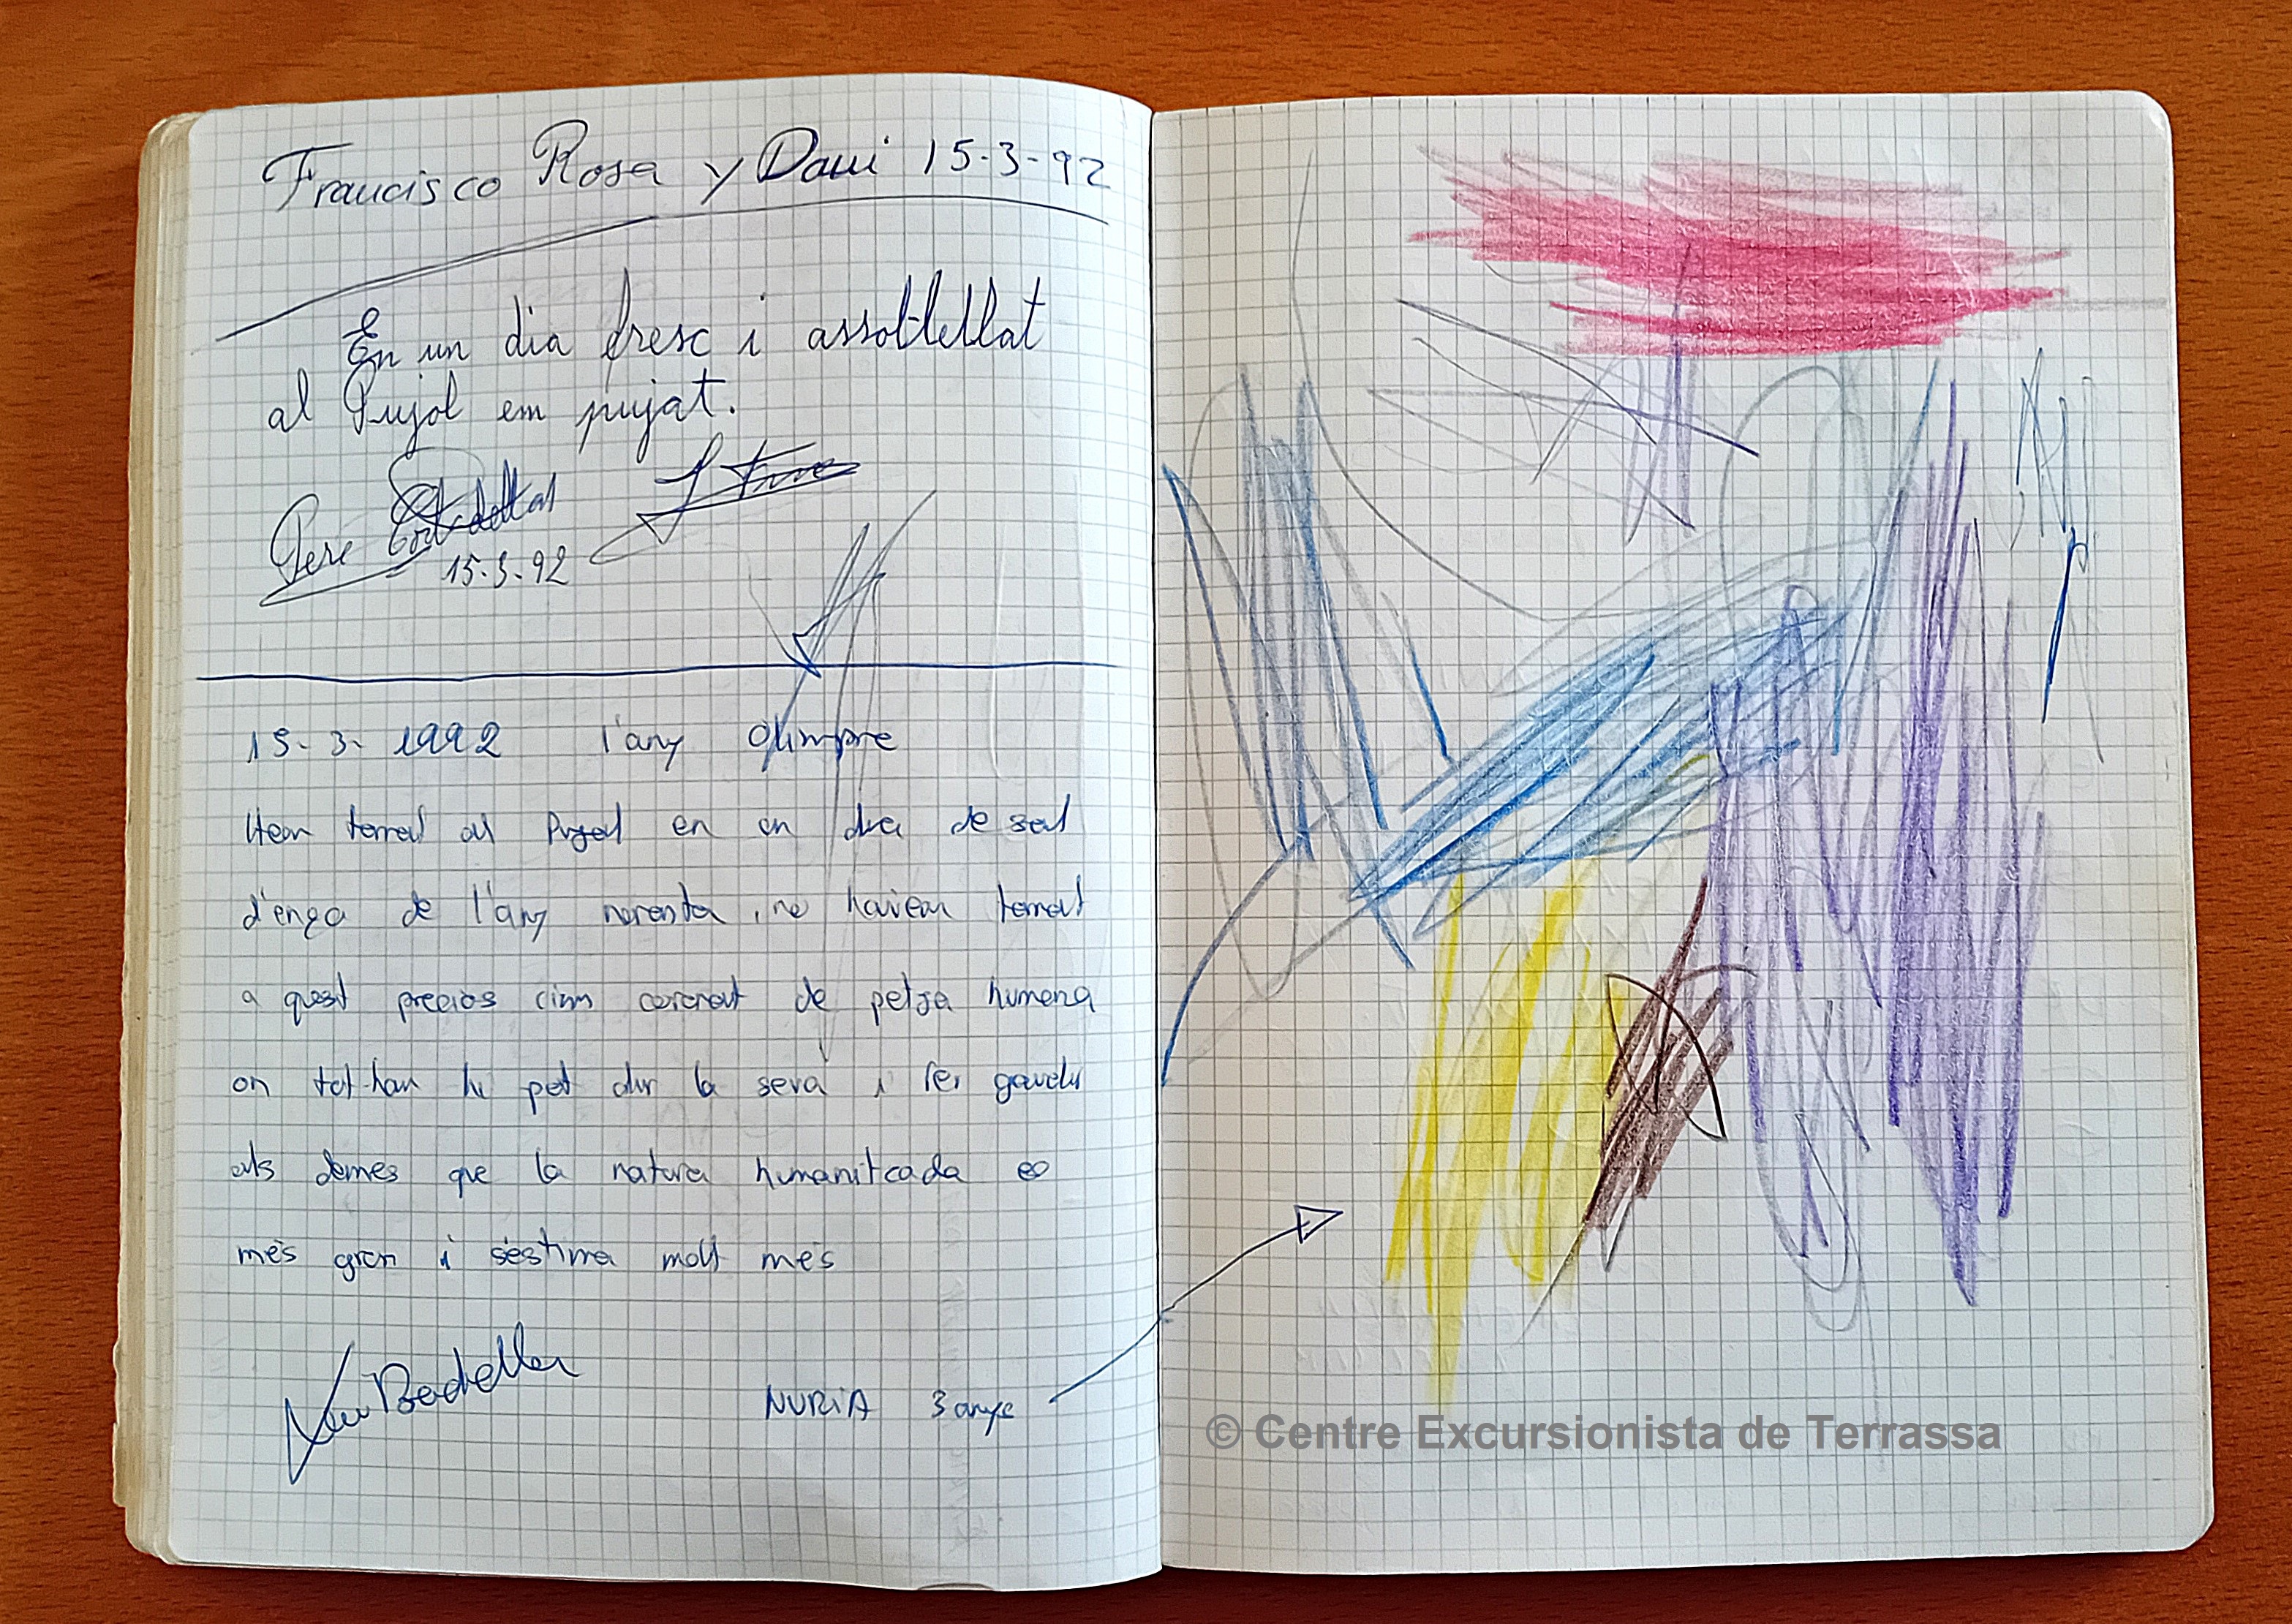 Francisco Rosa y Davi 15-3-92
En un dia fresc i assotellat
al Pujol em pujat.
Pere
15-3-92
15-3-1992 l'any Olimpic
Hem tornat al Pujol en un dia de sol
d'ença de l'any noranta, no haviem tornat
a quest precios cim coronat de petja humana
on tot-hom hi pot dir la seva i fer gaudir
als demes que la natura humanitzada es
més gran i s'estima molt més
NURIA 3 anys
© Centre Excursionista de Terrassa